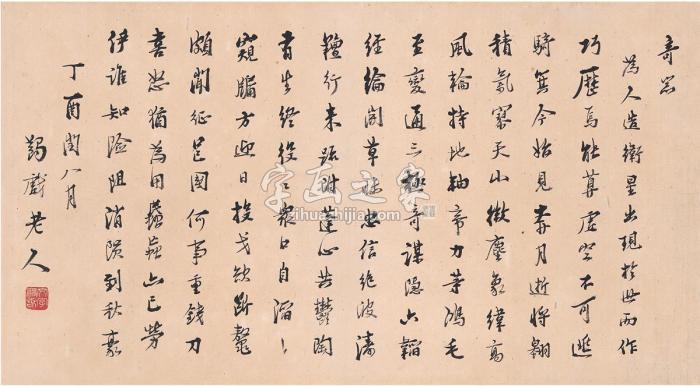 奇器
為人造衛星出現於世而作
巧曆焉能算虛空不可逃
騎箕今始見奔月逝將翱
積氣寥天微塵象緯高
風輪持地軸帝力等鴻毛
至變通三極奇謀隱六韜
經綸草昧忠信絕波濤
羶行來蓬心共鬱陶
有生終役役眾口自滔滔
窺牖方迎日投戈欲斷鼇
頗聞征邑國何事重錢刀
喜怒猶為用亦已勞
伊誰知險阻消隕到秋豪
丁酉閏八月
蠲戲老人
字画之家
zihuashijia.com